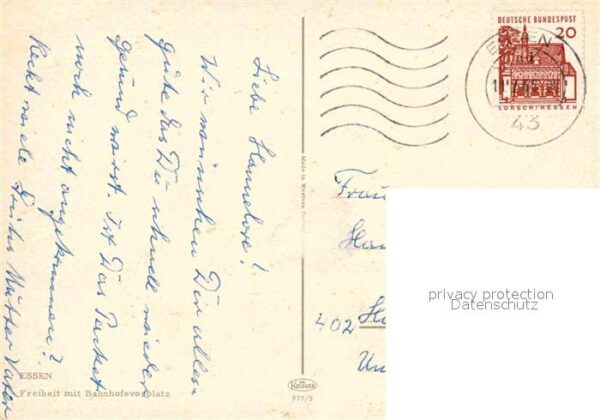 Liebe Hannelore!
Wir wünschen Dir alles
gute das Du schnell wieder
gesund wirst. Ist Das Packet
noch nicht angekommen?
Recht viele Grüße Mutter Vater
ESSEN
Freiheit mit Bahnhofsvorplatz
Krüger
977/5
Made in Western
DEUTSCHE BUNDESPOST
20
LORSCH/HESSEN
ESSEN
43
Frau
Han
402
Un
privacy protection
Datenschutz